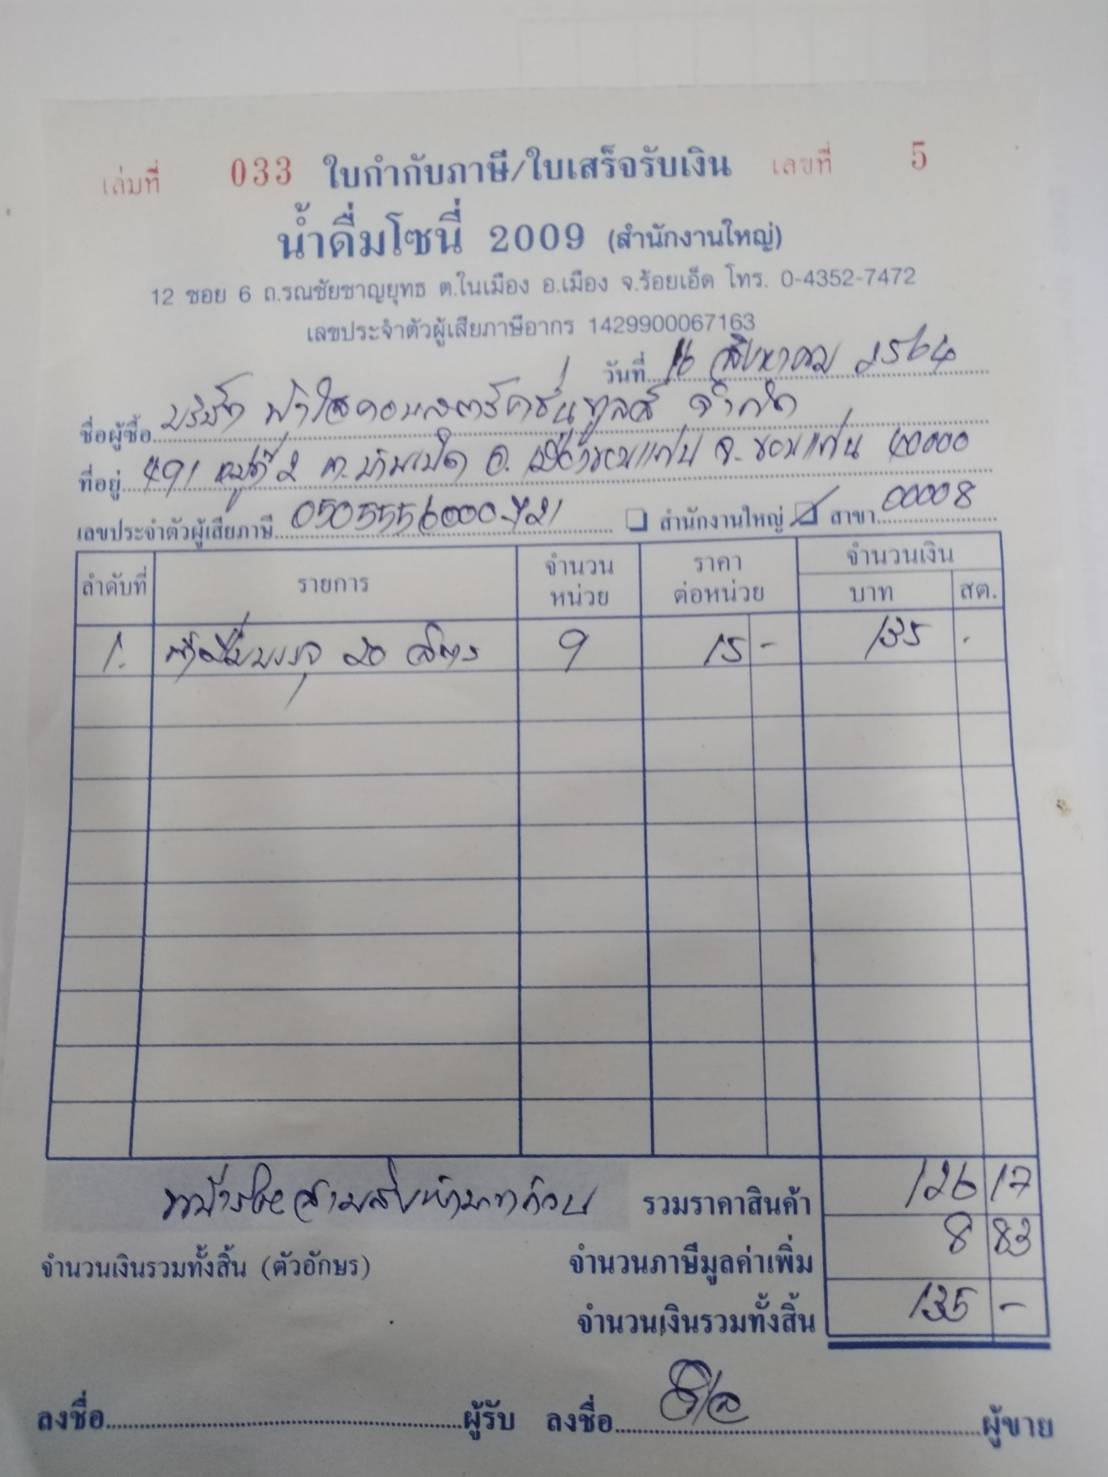 เล่มที่ 033 ใบกำกับภาษี/ใบเสร็จรับเงิน เลขที่ 5
น้ำดื่มโซนี่ 2009 (สำนักงานใหญ่)
12 ซอย 6 ถ.รณชัยชาญยุทธ ต.ในเมือง อ.เมือง จ.ร้อยเอ็ด โทร. 0-4352-7472
เลขประจำตัวผู้เสียภาษีอากร 1429900067163
วันที่ 16 สิงหาคม 2564
ชื่อผู้ซื้อ บริษัท ฟ้าใสคอนสตรัคชั่นทูลส์ จำกัด
ที่อยู่ 491 หมู่ที่ 2 ต.บ้านเป็ด อ.เมืองขอนแก่น จ.ขอนแก่น 40000
เลขประจำตัวผู้เสียภาษี 0505556000721 สำนักงานใหญ่ สาขา 00008
ลำดับที่ รายการ จำนวนหน่วย ราคาต่อหน่วย จำนวนเงิน
บาท สต.
1. น้ำดื่มบรรจุ 20 ลิตร 9 15 - 135 -
หนึ่งร้อยสามสิบห้าบาทถ้วน รวมราคาสินค้า 126 17
จำนวนเงินรวมทั้งสิ้น (ตัวอักษร) จำนวนภาษีมูลค่าเพิ่ม 8 83
จำนวนเงินรวมทั้งสิ้น 135 -
ลงชื่อ ผู้รับ ลงชื่อ ผู้ขาย